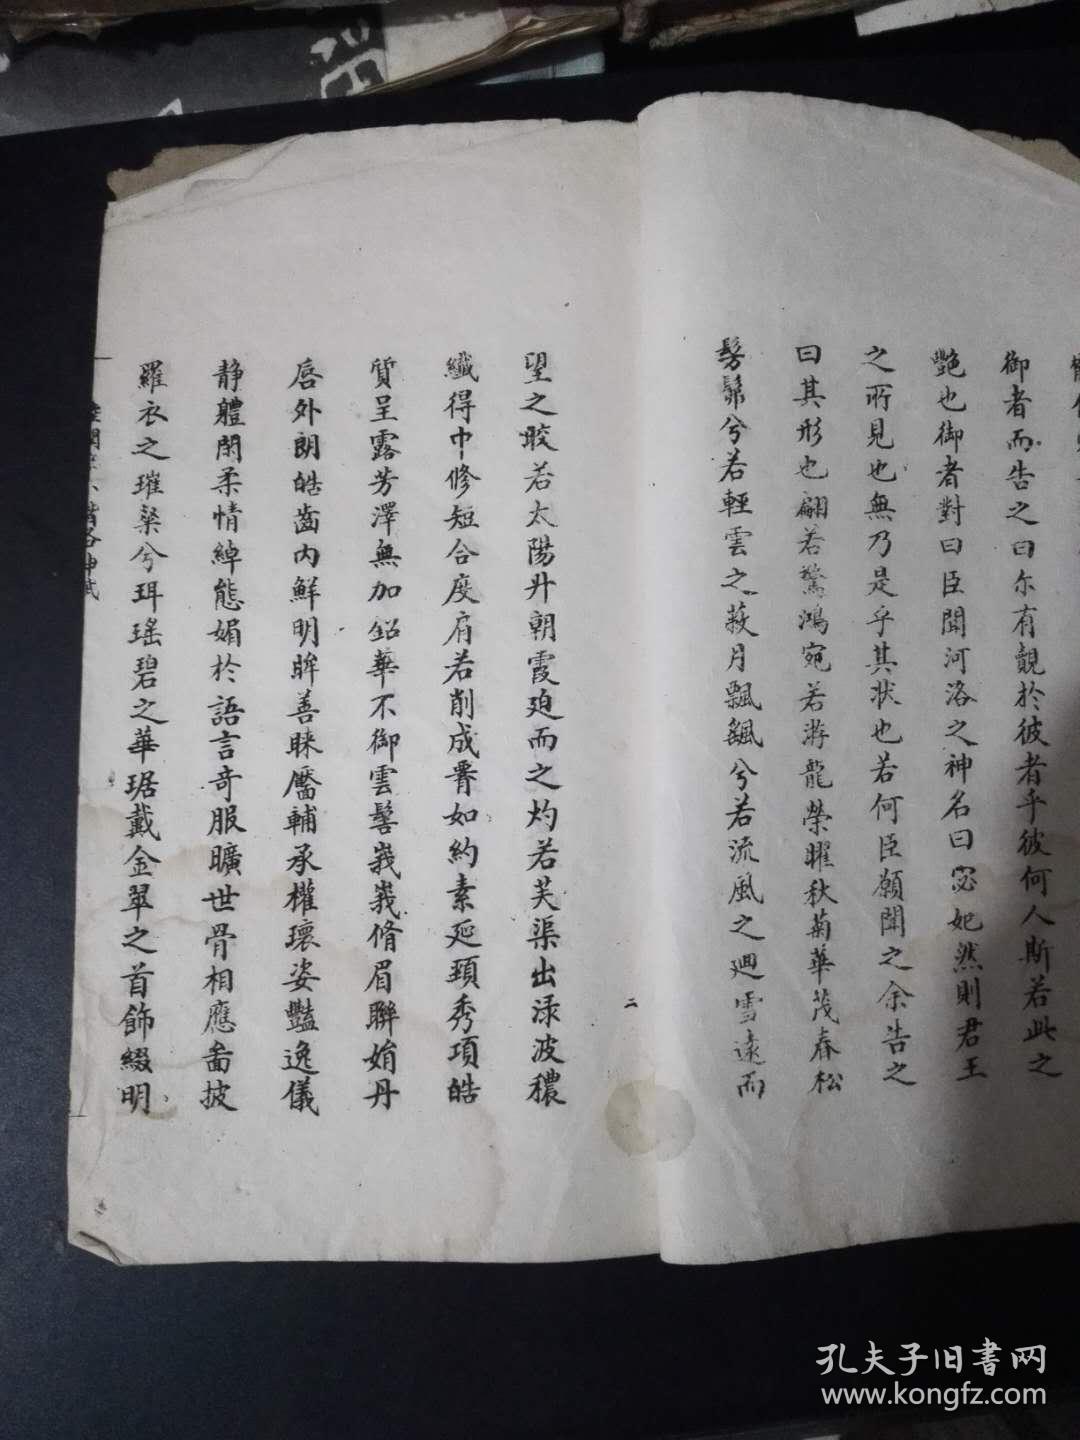 御者而告之曰尔有覿於彼者乎彼何人斯若此之
艷也御者對曰臣聞河洛之神名曰宓妃然則君王
之所見也無乃是乎其状也若何臣願聞之余告之
曰其形也翩若驚鴻宛若游龍榮曜秋菊華茂春松
髣髴兮若輕雲之蔽月飄飖兮若流風之迴雪遠而
二
望之皎若太陽升朝霞迫而之灼若芙渠出渌波穠
纖得中修短合度肩若削成𦝫如約素延頸秀項皓
質呈露芳澤無加鉛華不御雲髻峩峩脩眉聯娟丹
唇外朗皓齒内鮮明眸善睐靨輔承權瓌姿豔逸儀
静體閑柔情綽態媚於語言奇服曠世骨相應啚披
羅衣之璀粲兮珥瑶碧之華琚戴金翠之首飾綴明
孔夫子旧書网
www.kongfz.com